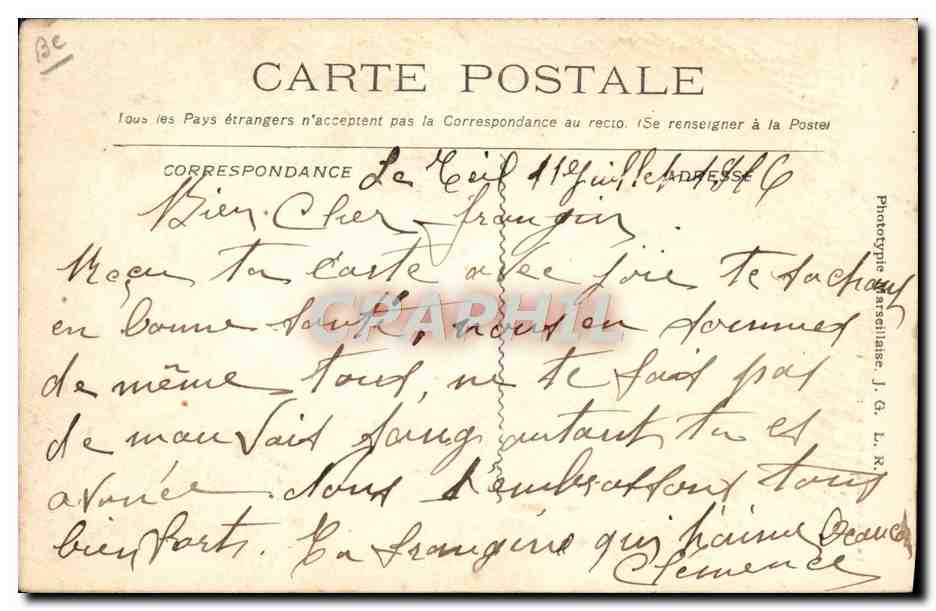 BC
CARTE POSTALE
Tous les Pays étrangers n'acceptent pas la Correspondance au recto. (Se renseigner à la Poste)
CORRESPONDANCE
ADRESSE
Le Teil 11 Juillet 1916
Bien Cher frangin
Reçu ta carte avec joie te sachant
en bonne santé, nous en sommes
de même tous, ne te fais pas
de mauvais sang autant tu es
avancé. Nous t'embrassons tous
bien forts. Ta frangine qui t'aime beaucou
Clemence
Phototypie Marseillaise. J. G. L. R.
CPAPHIL